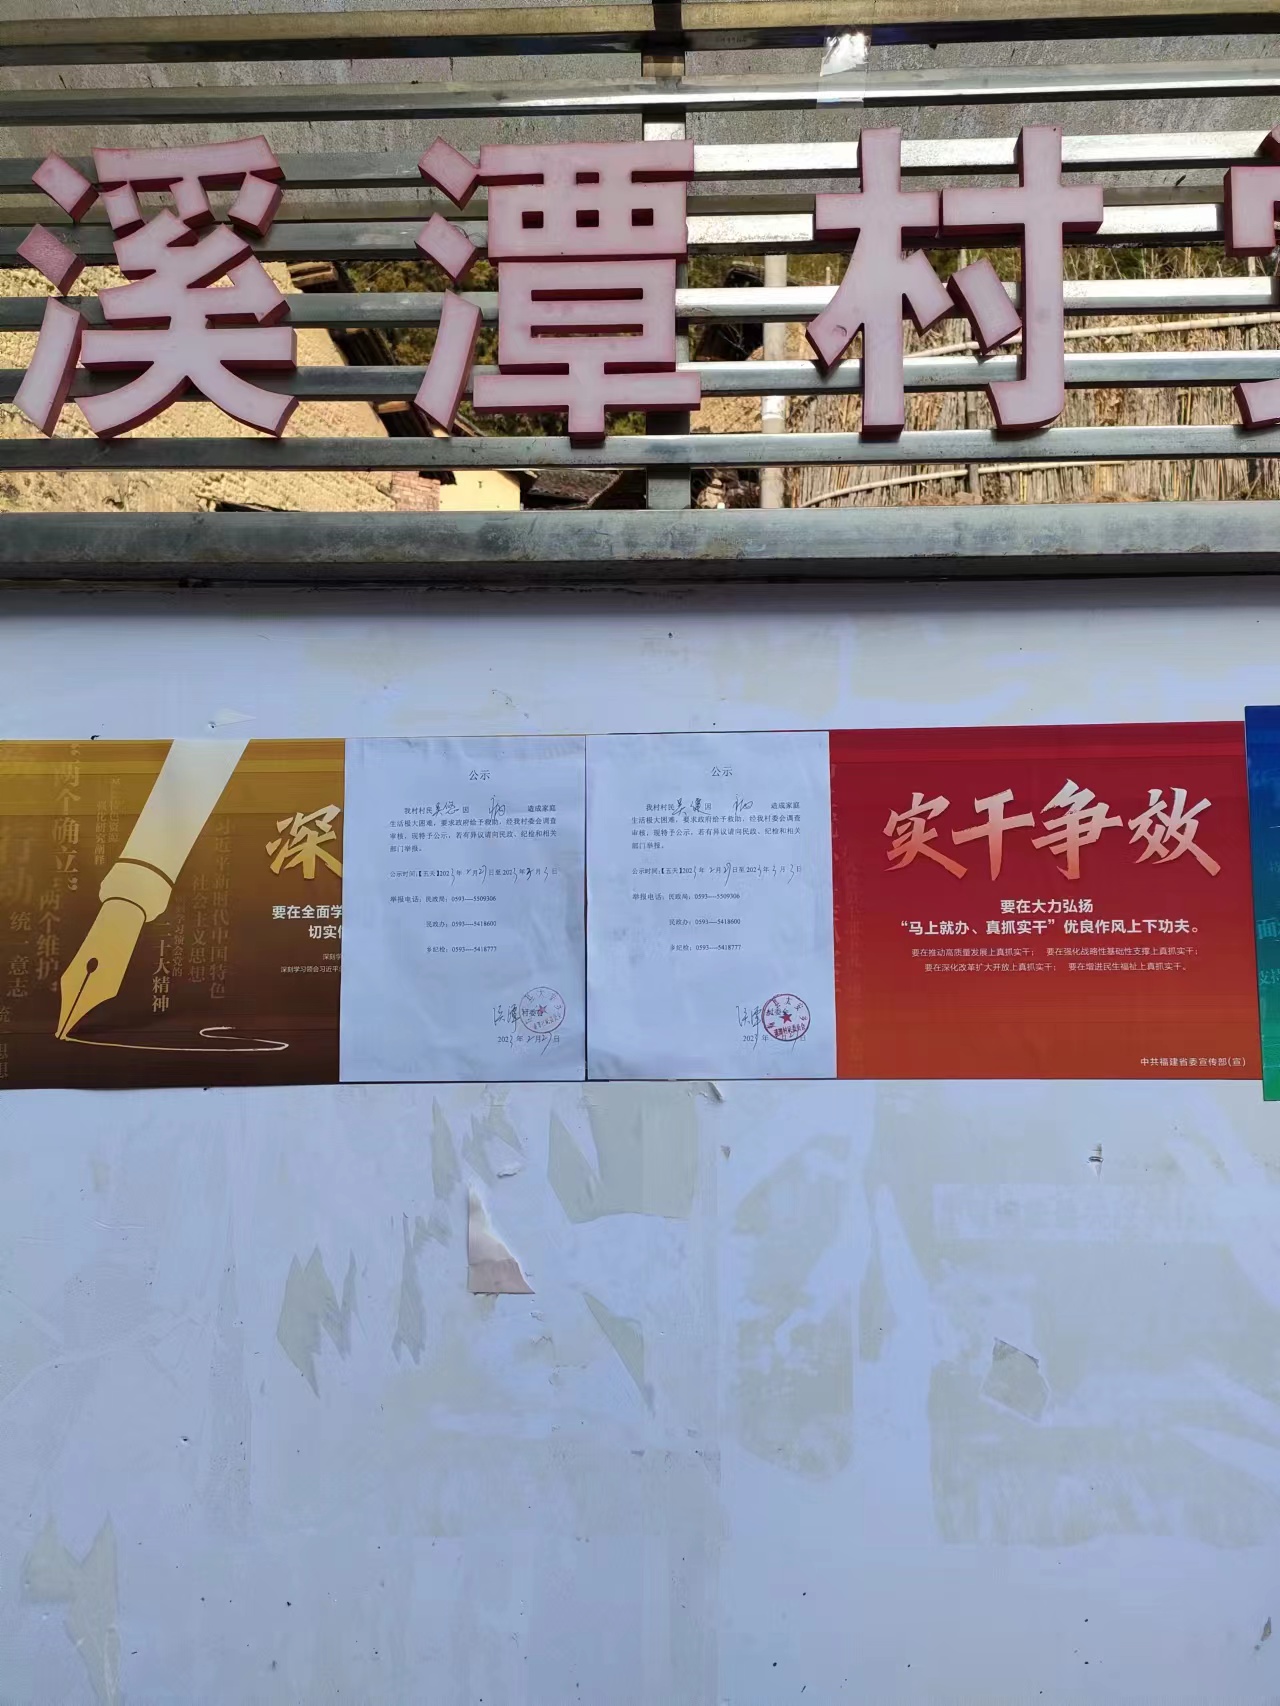 溪潭村
深
要在全面学
切实
“两个确立”
“两个维护”
统一意志
习近平新时代中国特色
社会主义思想
二十大精神
公示
我村村民吴 因 病 造成家庭
生活极大困难，要求政府给予救助，经我村委会调查
审核，现特予公示，若有异议请向民政、纪检和相关
部门举报。
公示时间：【五天】2023年2月27日至2023年3月3日
举报电话：民政局：0593----5509306
民政办：0593----5418600
乡纪检：0593----5418777
溪潭村委会
2023年2月27日
公示
我村村民吴 因 病 造成家庭
生活极大困难，要求政府给予救助，经我村委会调查
审核，现特予公示，若有异议请向民政、纪检和相关
部门举报。
公示时间：【五天】2023年2月27日至2023年3月3日
举报电话：民政局：0593----5509306
民政办：0593----5418600
乡纪检：0593----5418777
溪潭村委会
2023年2月27日
实干争效
要在大力弘扬
“马上就办、真抓实干”优良作风上下功夫。
要在推动高质量发展上真抓实干； 要在强化战略性基础性支撑上真抓实干；
要在深化改革扩大开放上真抓实干； 要在增进民生福祉上真抓实干。
中共福建省委宣传部(宣)